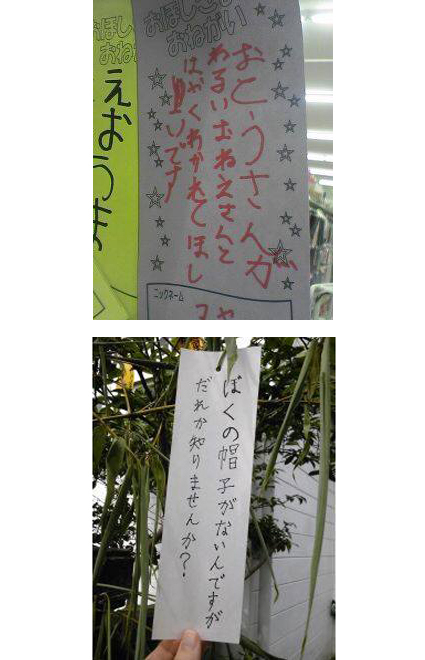 おほしさま
おねがい
おとうさんが
わるいおねえさんと
はやくわかれてほし
いです
ニックネーム
おほし
おねが
ぼくの帽子がないんですが
だれか知りませんか?